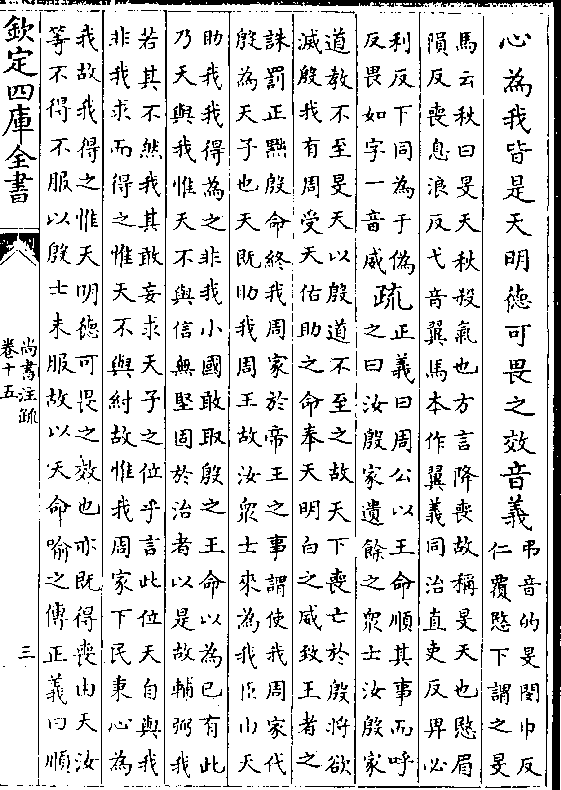 心為我皆是天明德可畏之效音義
弔音的旻閔巾反
仁覆愍下謂之旻
馬云秋曰旻天秋殺氣也方言降喪故稱旻天也愍眉
隕反喪息浪反弋音翼馬本作翼義同治直吏反畀必
利反下同為于偽
反畏如字一音威
疏
正義曰周公以王命順其事而呼
之曰汝殷家遺餘之眾士汝殷家
道教不至旻天以殷道不至之故天下喪亡於殷將欲
滅殷我有周受天佑助之命奉天明白之威致王者之
誅罰正黜殷命終我周家於帝王之事謂使我周家代
殷為天子也天既助我周王故汝眾士來為我臣由天
助我我得為之非我小國敢取殷之王命以為已有此
乃天與我惟天不與信無堅固於治者以是故輔弼我
若其不然我其敢妄求天子之位乎言此位天自與我
非我求而得之惟天不與紂故惟我周家下民秉心為
我故我得之惟天明德可畏之效也亦既得喪由天汝
等不得不服以殷士未服故以天命喻之傳正義曰順
欽定四庫全書
尚書注疏
卷十五
三